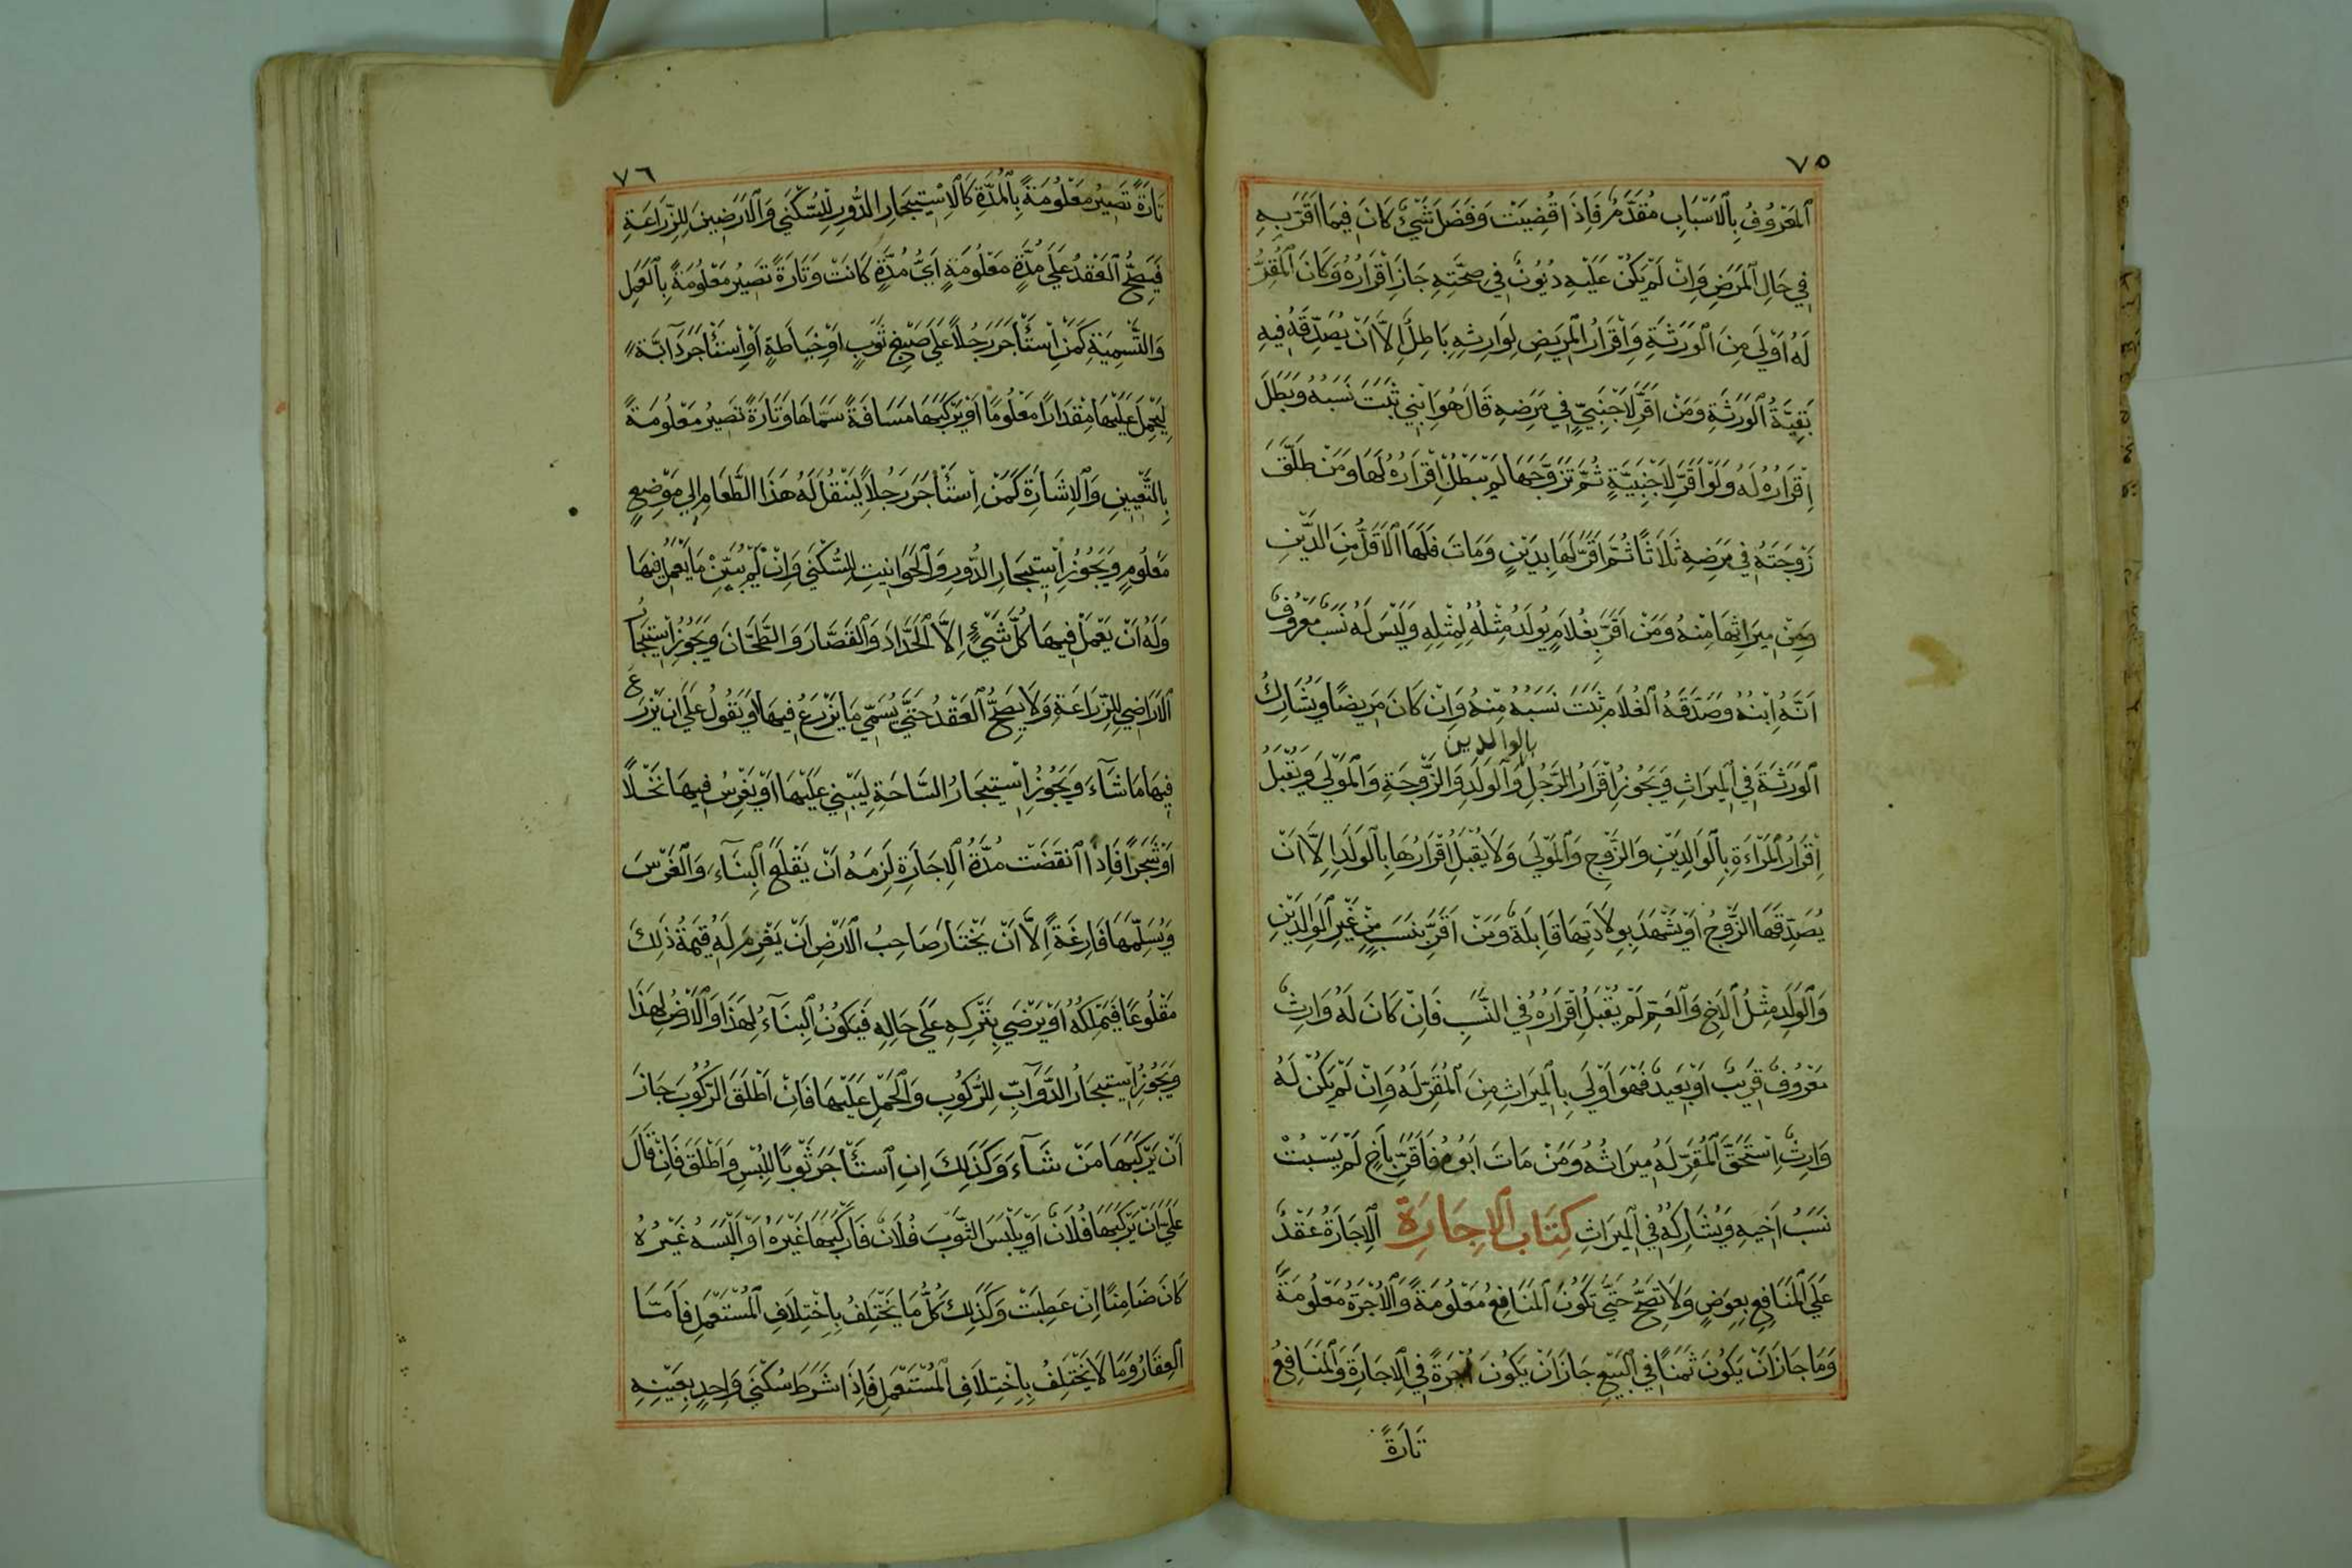 ٧٥
اَلْمَعْرُوفُ بِالْاَسْبَابِ مُقَدَّمٌ فَاِذَا قُضِيَتْ وَفَضَلَ شَيْءٌ كَانَ فِيمَا اَقَرَّ بِهِ
فِي حَالِ الْمَرَضِ وَاِنْ لَمْ يَكُنْ عَلَيْهِ دُيُونٌ فِي صِحَّتِهِ جَازَ اِقْرَارُهُ وَكَانَ الْمُقِرُّ
لَهُ اَوْلَى مِنَ الْوَرَثَةِ وَاِقْرَارُ الْمَرِيضِ لِوَارِثِهِ بَاطِلٌ اِلَّا اَنْ يُصَدِّقَهُ فِيهِ
بَقِيَّةُ الْوَرَثَةِ وَمَنْ اَقَرَّ لِاَجْنَبِيٍّ فِي مَرَضِهِ قَالَ هُوَ ابْنِي ثَبَتَ نَسَبُهُ وَبَطَلَ
اِقْرَارُهُ لَهُ وَلَوْ اَقَرَّ لِاَجْنَبِيَّةٍ ثُمَّ تَزَوَّجَهَا لَمْ يَبْطُلْ اِقْرَارُهُ لَهَا وَمَنْ طَلَّقَ
زَوْجَتَهُ فِي مَرَضِهِ ثَلَاثًا ثُمَّ اَقَرَّ لَهَا بِدَيْنٍ وَمَاتَ فَلَهَا الْاَقَلُّ مِنَ الدَّيْنِ
وَمِنْ مِيرَاثِهَا مِنْهُ وَمَنْ اَقَرَّ بِغُلَامٍ يُولَدُ مِثْلُهُ لِمِثْلِهِ وَلَيْسَ لَهُ نَسَبٌ مَعْرُوفٌ
اَنَّهُ اِبْنُهُ وَصَدَّقَهُ الْغُلَامُ ثَبَتَ نَسَبُهُ مِنْهُ وَاِنْ كَانَ مَرِيضًا وَيُشَارِكُ
بالوالدين
الْوَرَثَةَ فِي الْمِيرَاثِ وَيَجُوزُ اِقْرَارُ الرَّجُلِ وَالْوَلَدِ وَالزَّوْجَةِ وَالْمَوْلَى وَيُقْبَلُ
اِقْرَارُ الْمَرْاَةِ بِالْوَالِدَيْنِ وَالزَّوْجِ وَالْمَوْلَى وَلَا يُقْبَلُ اِقْرَارُهَا بِالْوَلَدِ اِلَّا اَنْ
يُصَدِّقَهَا الزَّوْجُ اَوْ يَشْهَدَ بِوِلَادَتِهَا قَابِلَةٌ وَمَنْ اَقَرَّ بِنَسَبٍ مِنْ غَيْرِ الْوَالِدَيْنِ
وَالْوَلَدِ مِثْلُ الْاَخِ وَالْعَمِّ لَمْ يُقْبَلْ اِقْرَارُهُ فِي النَّسَبِ فَاِنْ كَانَ لَهُ وَارِثٌ
مَعْرُوفٌ قَرِيبٌ اَوْ بَعِيدٌ فَهُوَ اَوْلَى بِالْمِيرَاثِ مِنَ الْمُقَرِّ لَهُ وَاِنْ لَمْ يَكُنْ لَهُ
وَارِثٌ اِسْتَحَقَّ الْمُقَرُّ لَهُ مِيرَاثَهُ وَمَنْ مَاتَ اَبُوهُ فَاَقَرَّ بِاَخٍ لَمْ يَثْبُتْ
نَسَبُ اَخِيهِ وَيُشَارِكُهُ فِي الْمِيرَاثِ كِتَابُ الْاِجَارَةِ اَلْاِجَارَةُ عَقْدٌ
عَلَى الْمَنَافِعِ بِعِوَضٍ وَلَا تَصِحُّ حَتَّى تَكُونَ الْمَنَافِعُ مَعْلُومَةً وَالْاُجْرَةُ مَعْلُومَةً
وَمَا جَازَ اَنْ يَكُونَ ثَمَنًا فِي الْبَيْعِ جَازَ اَنْ يَكُونَ اُجْرَةً فِي الْاِجَارَةِ وَالْمَنَافِعُ
تَارَةً
٧٦
تَارَةً تَصِيرُ مَعْلُومَةً بِالْمُدَّةِ كَالْاِسْتِيجَارِ الدُّورِ لِلسُّكْنَى وَالْاَرَضِينَ لِلزِّرَاعَةِ
فَيَصِحُّ الْعَقْدُ عَلَى مُدَّةٍ مَعْلُومَةٍ اَيُّ مُدَّةٍ كَانَتْ وَتَارَةً تَصِيرُ مَعْلُومَةً بِالْعَمَلِ
وَالتَّسْمِيَةِ كَمَنْ اِسْتَأْجَرَ رَجُلاً عَلَى صَبْغِ ثَوْبٍ اَوْ خِيَاطَةٍ اَوْ اِسْتَأْجَرَ دَآبَّةً
لِيَحْمِلَ عَلَيْهَا مِقْدَارًا مَعْلُومًا اَوْ يَرْكَبَهَا مَسَافَةً سَمَّاهَا وَتَارَةً تَصِيرُ مَعْلُومَةً
بِالتَّعْيِينِ وَالْاِشَارَةِ كَمَنْ اِسْتَأْجَرَ رَجُلاً لِيَنْقُلَ لَهُ هَذَا الطَّعَامَ اِلَى مَوْضِعٍ
مَعْلُومٍ وَيَجُوزُ اِسْتِيجَارُ الدُّورِ وَالْحَوَانِيتِ لِلسُّكْنَى وَاِنْ لَمْ يُبَيِّنْ مَا يَعْمَلُ فِيهَا
وَلَهُ اَنْ يَعْمَلَ فِيهَا كُلَّ شَيْءٍ اِلَّا الْحَدَّادَ وَالْقَصَّارَ وَالطَّحَّانَ وَيَجُوزُ اِسْتِيجَارُ
الْاَرَاضِي لِلزِّرَاعَةِ وَلَا يَصِحُّ الْعَقْدُ حَتَّى يُسَمِّيَ مَا يَزْرَعُ فِيهَا اَوْ يَقُولُ عَلَى اَنْ يَزْرَعَ
فِيهَا مَا شَآءَ وَيَجُوزُ اِسْتِيجَارُ السَّاحَةِ لِيَبْنِيَ عَلَيْهَا اَوْ يَغْرِسُ فِيهَا نَخْلًا
اَوْ شَجَرًا فَاِذَا انْقَضَتْ مُدَّةُ الْاِجَارَةِ لَزِمَهُ اَنْ يَقْلَعَ الْبِنَآءَ وَالْغَرْسَ
وَيُسَلِّمَهَا فَارِغَةً اِلَّا اَنْ يَخْتَارَ صَاحِبُ الْاَرْضِ اَنْ يَغْرِمَ لَهُ قِيمَةَ ذَلِكَ
مَقْلُوعًا فَيَمْلِكُهُ اَوْ يَرْضَى بِتَرْكِهِ عَلَى حَالِهِ فَيَكُونُ الْبِنَآءُ لِهَذَا وَالْاَرْضُ لِهَذَا
وَيَجُوزُ اِسْتِيجَارُ الدَّوَآبِّ لِلرُّكُوبِ وَالْحَمْلِ عَلَيْهَا فَاِنْ اَطْلَقَ الرُّكُوبَ جَازَ
اَنْ يَرْكَبَهَا مَنْ شَآءَ وَكَذَلِكَ اِنِ اسْتَأْجَرَ ثَوْبًا لِلُّبْسِ وَاَطْلَقَ فَاِنْ قَالَ
عَلَى اَنْ يَرْكَبَهَا فُلَانٌ اَوْ يَلْبَسَ الثَّوْبَ فُلَانٌ فَاَرْكَبَهَا غَيْرَهُ اَوْ اَلْبَسَهُ غَيْرَهُ
كَانَ ضَامِنًا اِنْ عَطِبَتْ وَكَذَلِكَ كُلُّ مَا يَخْتَلِفُ بِاِخْتِلَافِ الْمُسْتَعْمِلِ فَاَمَّا
الْعِقَارُ وَمَا لَا يَخْتَلِفُ بِاِخْتِلَافِ الْمُسْتَعْمِلِ فَاِذَا شَرَطَ سُكْنَى وَاحِدٍ بِعَيْنِهِ